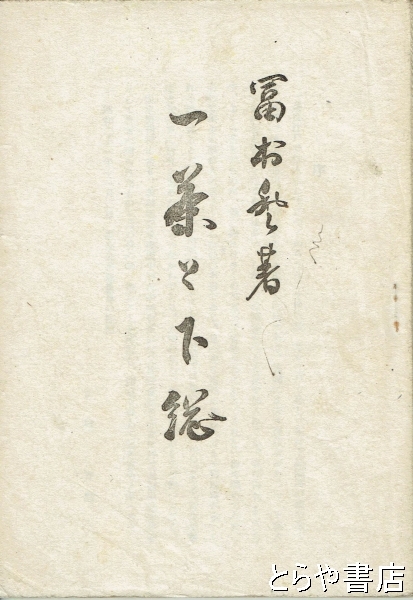 冨村登著
一茶と下総
とらや書店